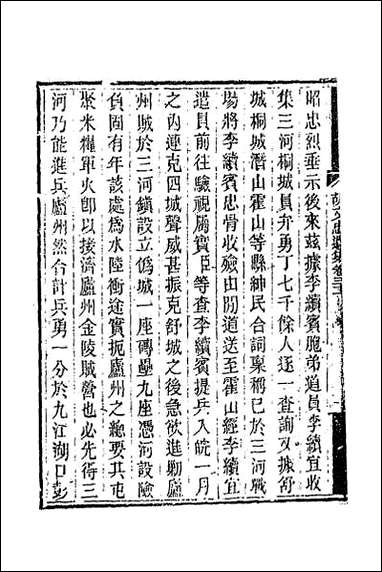 昭忠烈垂示後來茲據李續賓胞弟道員李續宜收
集三河桐城員弁勇丁七千餘人逐一查詢又據舒
城桐城潛山霍山等縣紳民合詞稟稱已於三河戰
場將李續賓忠骨收殮由間道送至霍山經李續宜
遣員前往驗視屬實臣等查李續賓提兵入皖一月
之內連克四城聲威甚振克舒城之後急欲進勦廬
州賊於三河鎮設立僞城一座磚壘九座憑河設險
負固有年該處為水陸衝途實扼廬州之總要其屯
聚米糧軍火卽以接濟廬州金陵賊營也必先得三
河乃能進兵廬州然合計兵勇一分於九江湖口彭